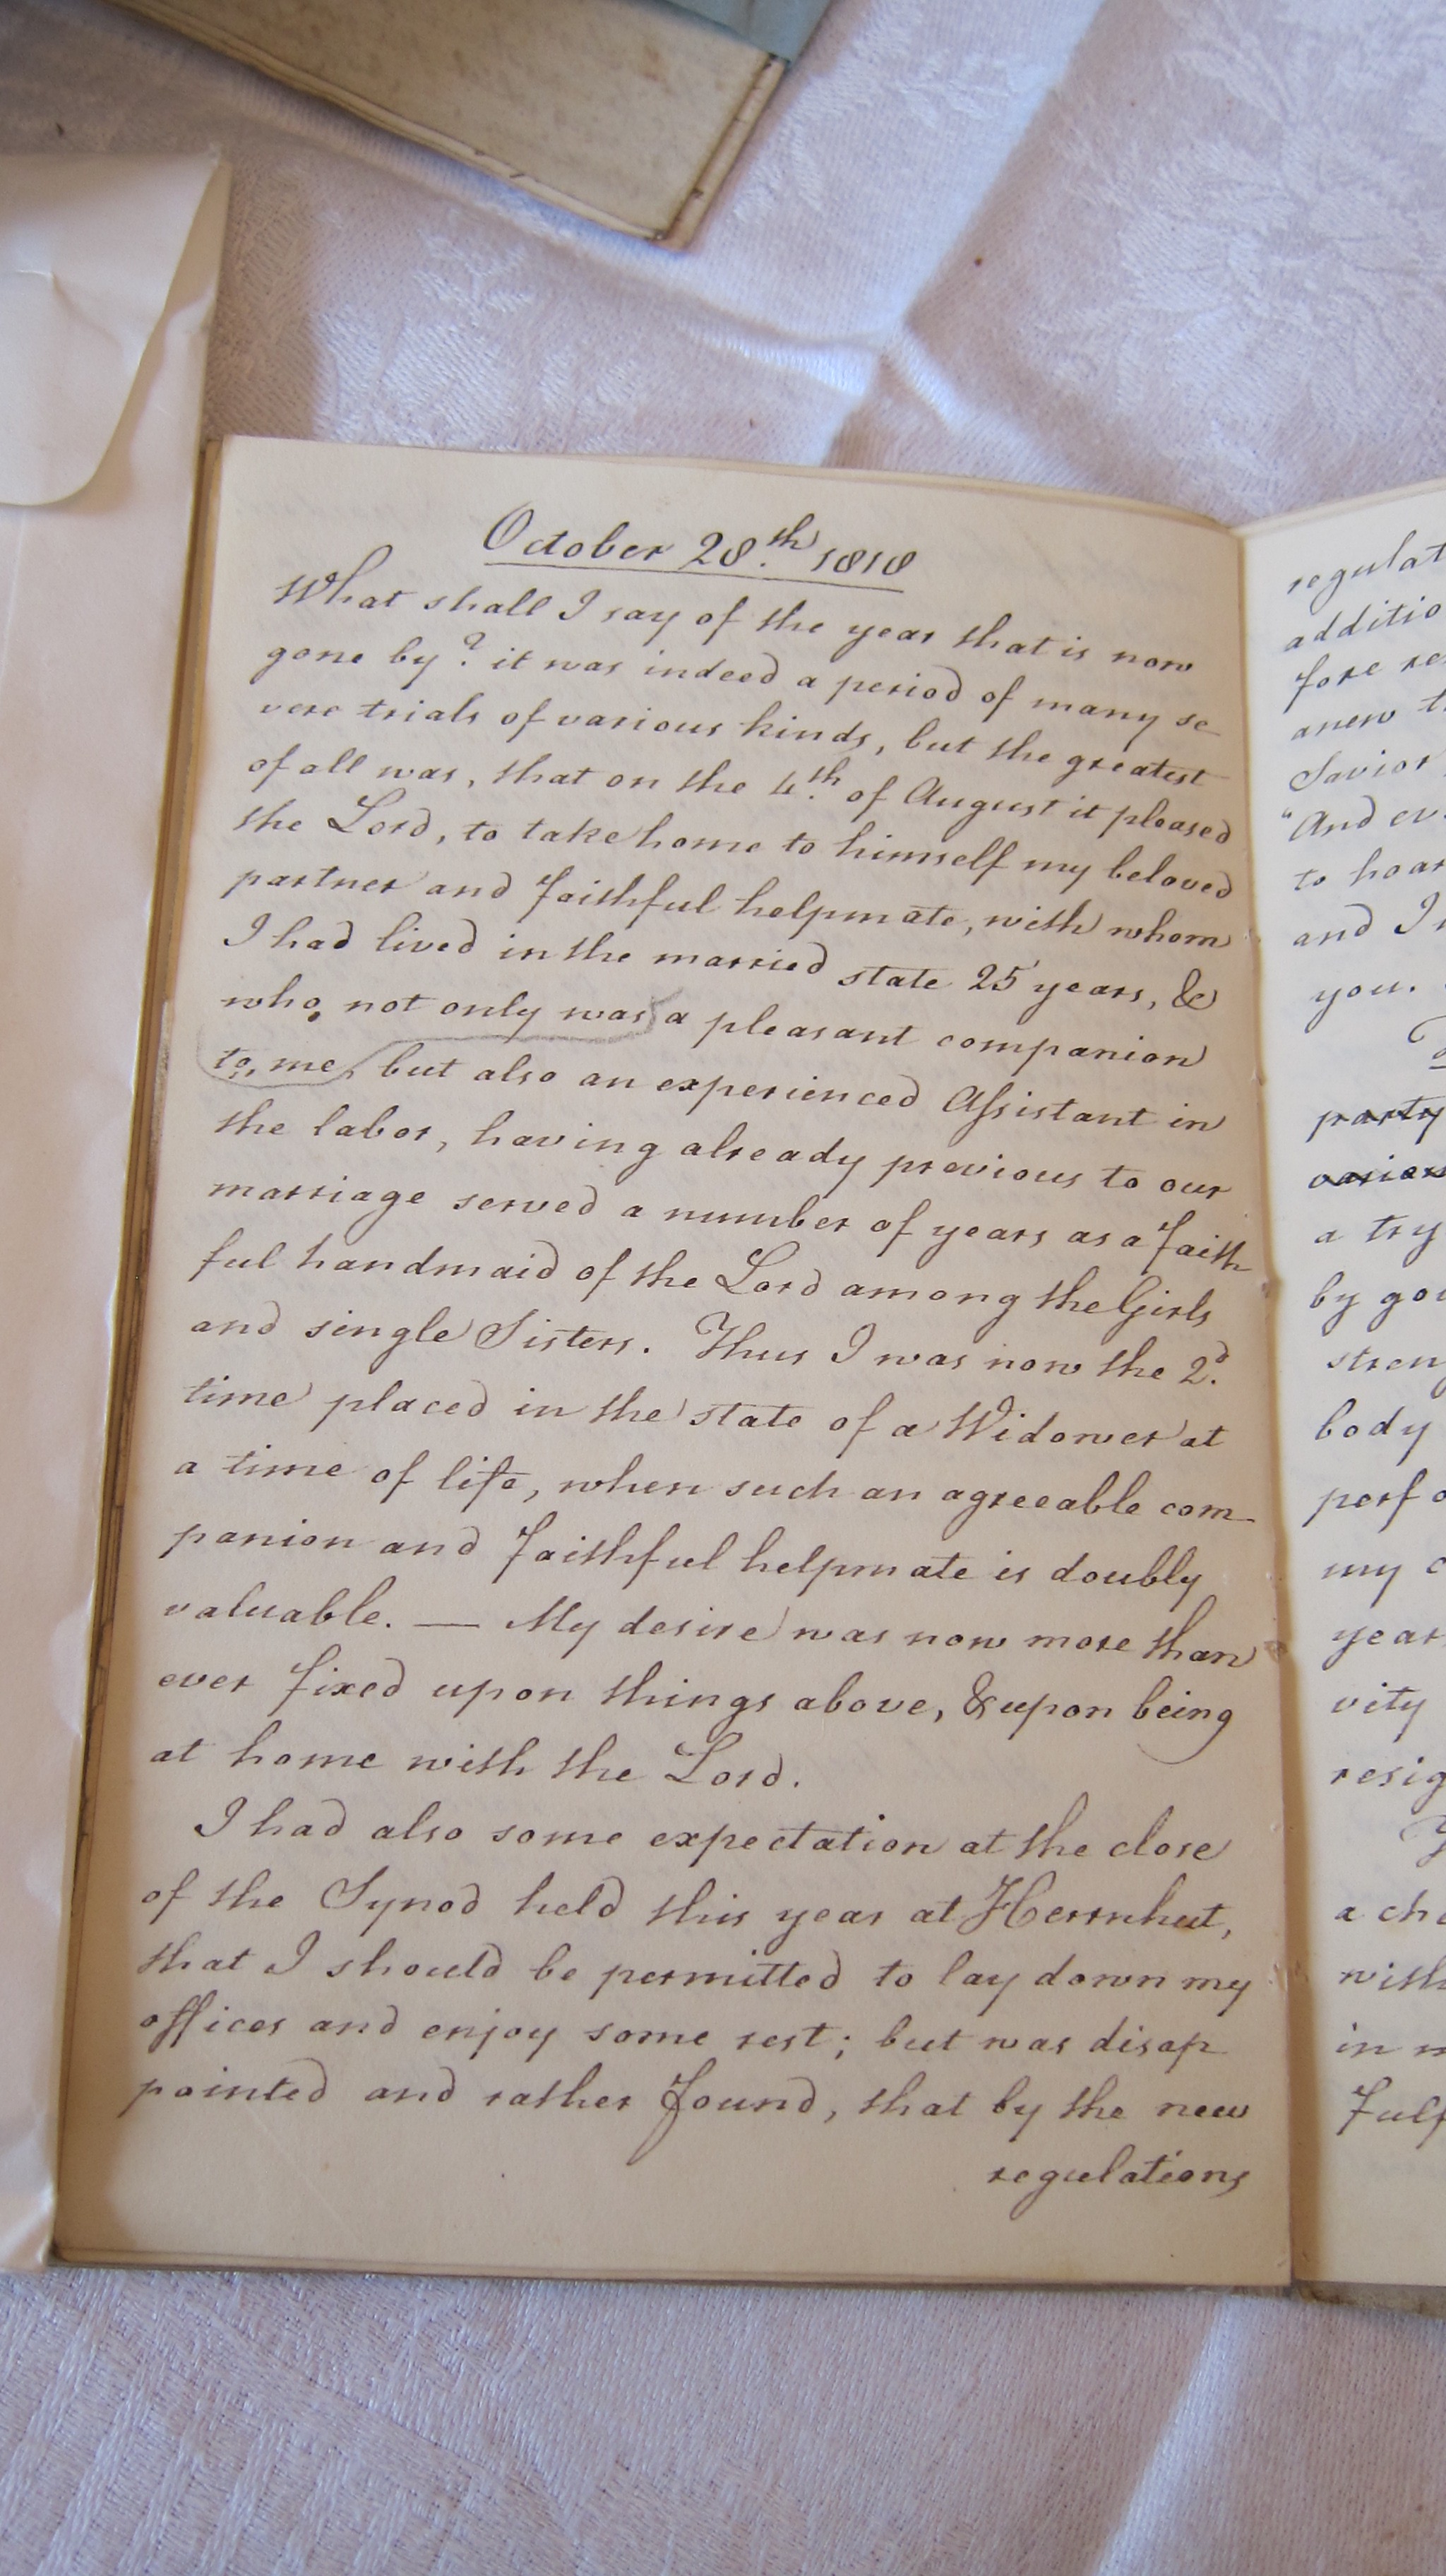 October 28.th 1818
What shall I say of the year that is now
gone by? it was indeed a period of many se-
vere trials of various kinds, but the greatest
of all was, that on the 4.th of August it pleased
the Lord, to take home to himself my beloved
partner and faithful helpmate, with whom
I had lived in the married state 25 years, &
who, not only was a pleasant companion
to, me, but also an experienced Assistant in
the labor, having already previous to our
marriage served a number of years as a faith
ful handmaid of the Lord among the Girls
and single Sisters. Thus I was now the 2.d
time placed in the state of a Widower at
a time of life, when such an agreeable com-
panion and faithful helpmate is doubly
valuable. — My desire was now more than
ever fixed upon things above, & upon being
at home with the Lord.
I had also some expectation at the close
of the Synod held this year at Herrnhut,
that I should be permitted to lay down my
offices and enjoy some rest; but was disap
pointed and rather found, that by the new
regulations
regulat
additio
fore re
anew t
Savior
"And ev
to hoar
and I
you.
party
a try
by goi
stren
body
perfo
my c
year
vity
resig
a cha
with
in
Fulf